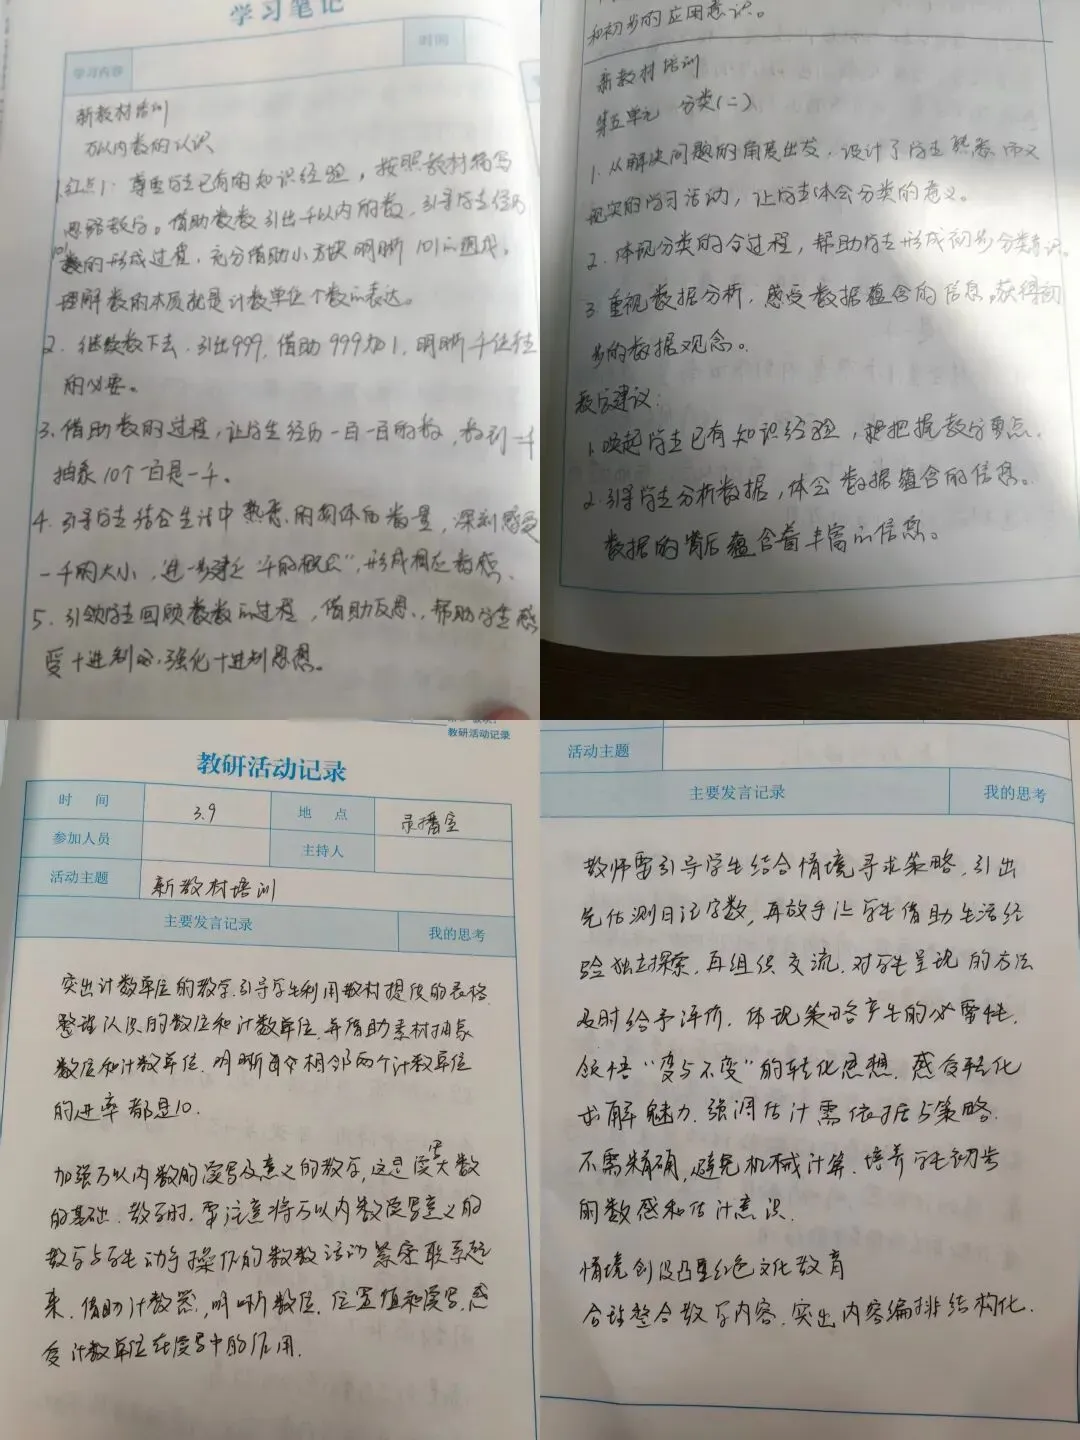 学习笔记
时间
学习内容
新教材培训
万以内数的认识
1.红点1：尊重学生已有的知识经验，按照教材编写
思路教学。借助数数引出千以内的数，引导学生经历
101的形成过程，充分借助小方块明晰101的组成，
理解数的本质就是计数单位个数的表达。
2.继续数下去，引出999，借助999加1，明晰千位产生
的必要。
3.借助数的过程，让学生经历一百一百的数，数到一千
抽象10个一百是一千。
4.引导学生结合生活中熟悉的物体的数量，深刻感受
一千的大小，进一步建立“千的概念”，形成相应数感、
5.引领学生回顾数数的过程，借助反思，帮助学生感
受十进制，强化十进制思想。
和初步的应用意识。
新教材培训
第五单元 分类(二)
1.从解决问题的角度出发，设计了学生熟悉而又
现实的学习活动，让学生体会分类的意义。
2.体现分类的全过程，帮助学生形成初步分类意识。
3.重视数据分析，感受数据蕴含的信息，获得初
步的数据观念。
教学建议：
1.唤起学生已有知识经验，把握教学重点。
2.引导学生分析数据，体会数据蕴含的信息。
数据的背后蕴含着丰富的信息。
教研活动记录
教研活动记录
时 间 3.9 地 点 录播室
参加人员 主持人
活动主题 新教材培训
主要发言记录 我的思考
突出计数单位的教学，引导学生利用教材提供的表格，
整理认识的数位和计数单位，并借助素材抽象
数位和计数单位，明晰每相邻两个计数单位
的进率都是10.
加强万以内数的读写及意义的教学，这是读写大数
的基础，教学时，要注意将万以内数读写意义的
教学与学生动手操作的数数活动紧密联系起
来，借助计数器，明晰数位、位置值和读写，感
受计数单位在读写中的作用.
活动主题
主要发言记录 我的思考
教师要引导学生结合情境寻求策略，引出
先估测日记字数，再放手让学生借助生活经
验独立探索，再组织交流，对学生呈现的方法
及时给予评价，体现策略产生的必要性，
领悟“变与不变”的转化思想，感受转化
求解魅力，强调估计需依据与策略，
不需精确，避免机械计算，培养学生初步
的数感和估计意识.
情境创设凸显红色文化教育
合理整合教学内容，突出内容编排结构化.